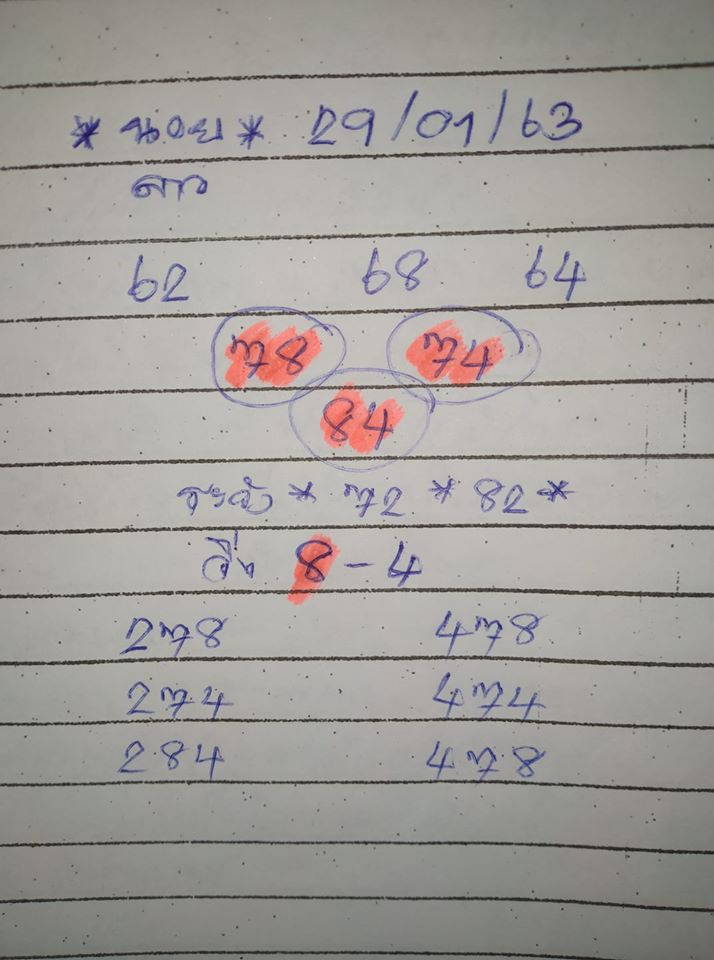 *ฮนอย* 29/01/63
ลาว
62 68 64
78 74
84
ระวัง * 72 * 82 *
วิ่ง 8-4
278 478
274 474
284 478